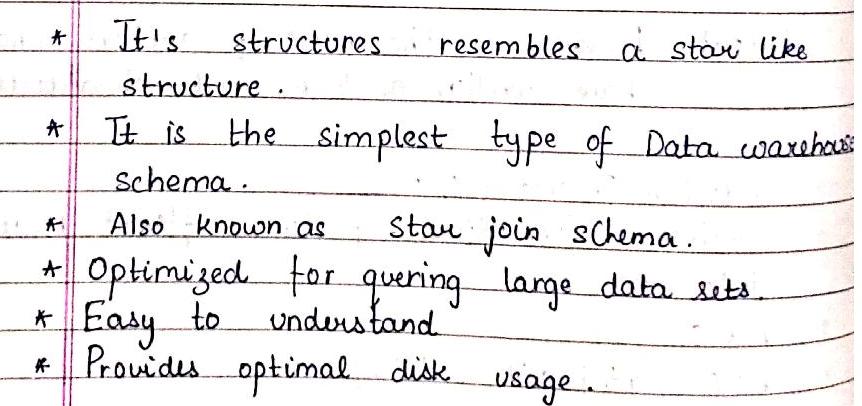 * It's structures resembles a star like
structure.
* It is the simplest type of Data warehouse
schema.
* Also known as star join schema.
* Optimized for quering large data sets.
* Easy to understand
* Provides optimal disk usage.